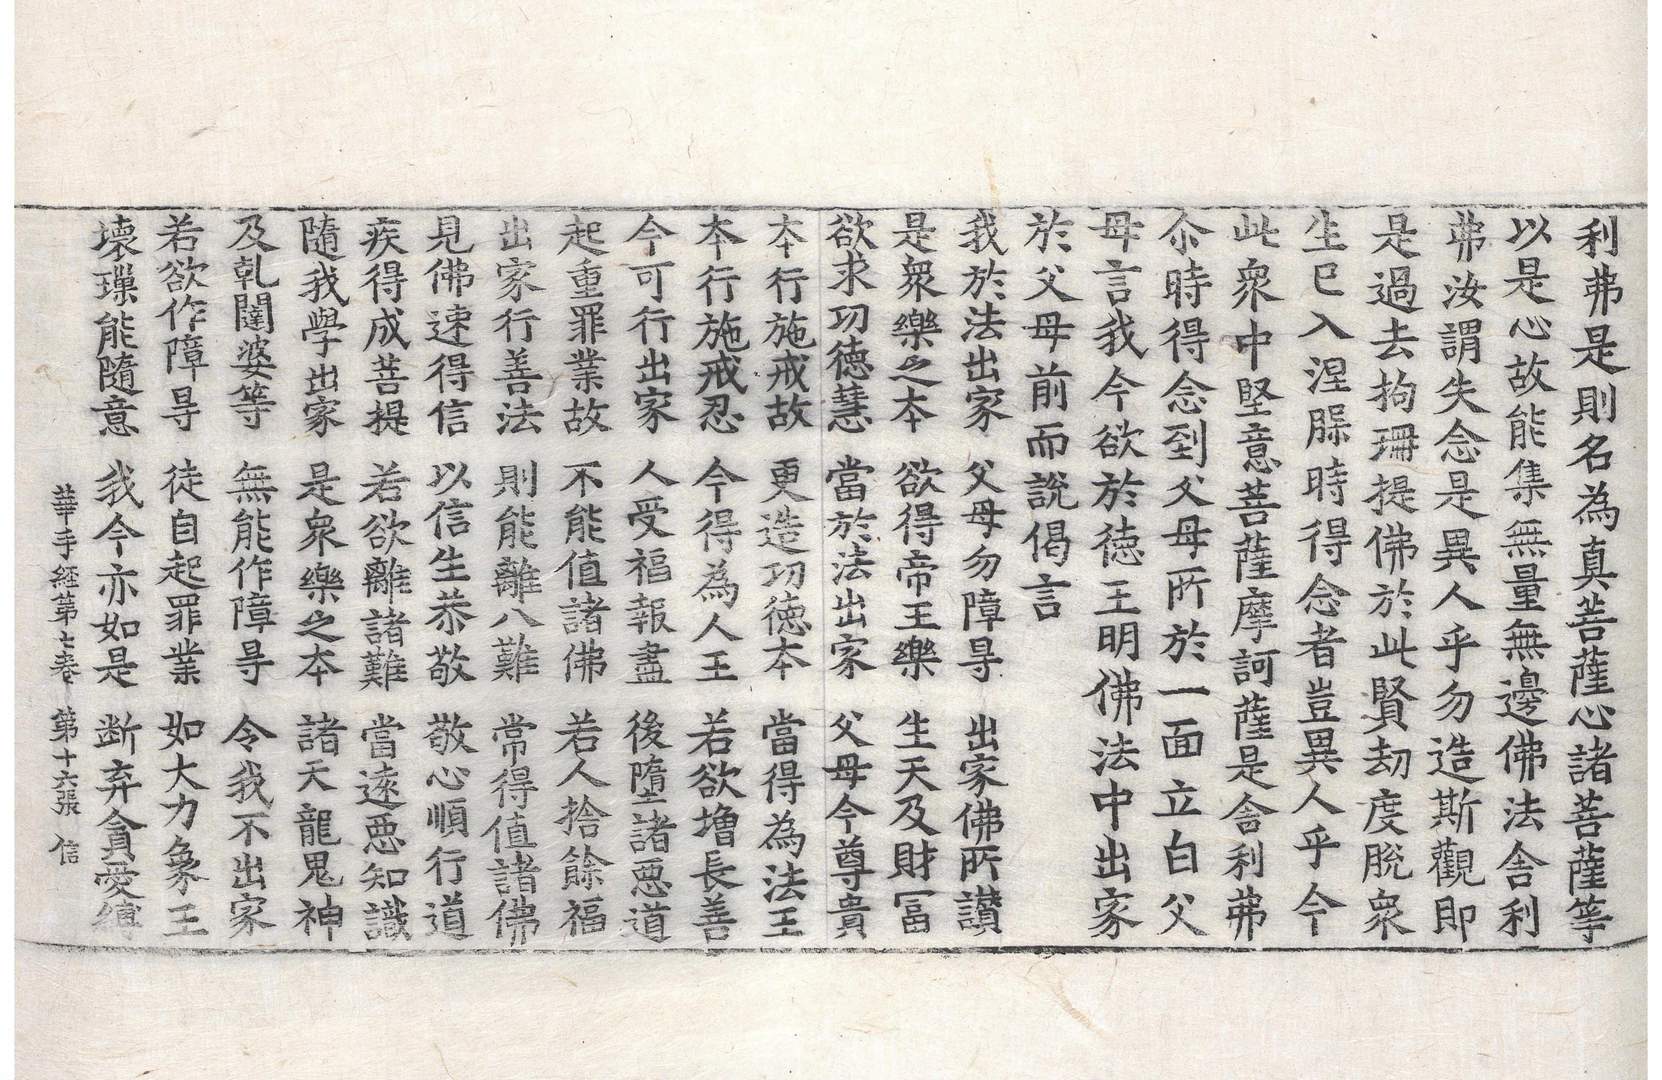 利弗是則名為真菩薩心諸菩薩等
以是心故能集無量無邊佛法舍利
弗汝謂失念是異人乎勿造斯觀即
是過去拘珊提佛於此賢劫度脫衆
生已入涅槃時得念者豈異人乎今
此衆中堅意菩薩摩訶薩是舍利弗
尒時得念到父母所於一面立白父
母言我今欲於德王明佛法中出家
於父母前而說偈言
我於法出家 父母勿障㝵 出家佛所讃
是衆樂之本 欲得帝王樂 生天及財冨
欲求功德慧 當於法出家 父母今尊貴
本行施戒故 更造功德本 當得為法王
本行施戒忍 今得為人王 若欲增長善
今可行出家 人受福報盡 後墮諸惡道
起重罪業故 不能值諸佛 若人捨餘福
出家行善法 則能離八難 常得值諸佛
見佛速得信 以信生恭敬 敬心順行道
疾得成菩提 若欲離諸難 當遠惡知識
隨我學出家 是衆樂之本 諸天龍鬼神
及乹闥婆等 無能作障㝵 令我不出家
若欲作障㝵 徒自起罪業 如大力象王
壞璅能隨意 我今亦如是 断弃貪愛縛
華手経第七卷 第十六張 信